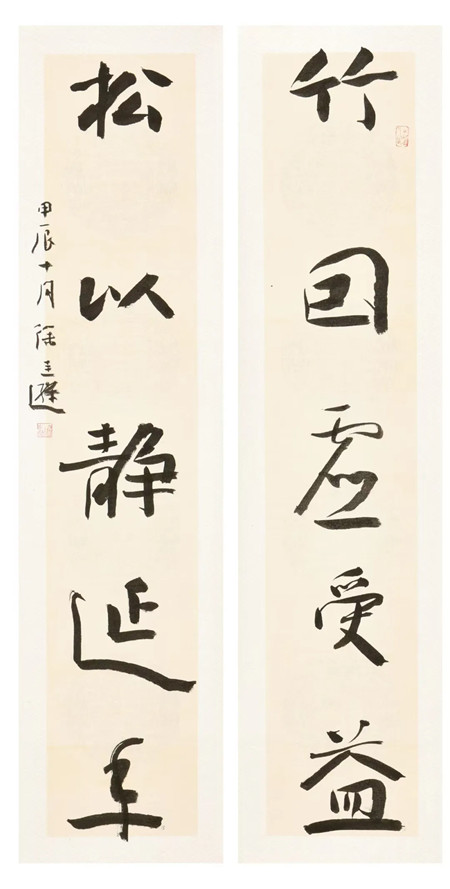 竹因虚受益
松以静延年
甲辰十月徐